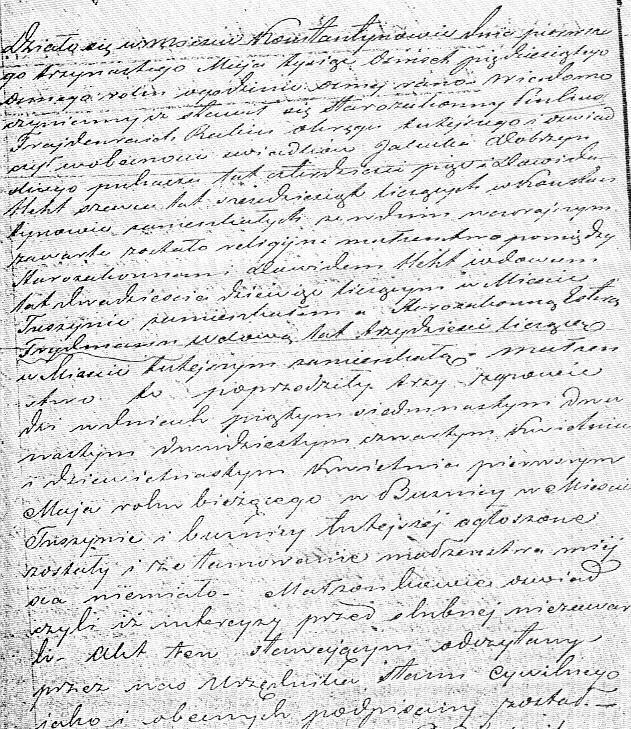 Działo się w mieście Konstantynowie dnia pierwsze
go trzynastego Maja tysiąc ośmset pięćdziesiątego
osmego roku o godzinie osmej rano. Wiadomo
czyniemy iż stawił się Starozakonny
Rabin okręgu tutejszego i oświad
czył w obecności świadków Dobrzyn
lat czterdzieści pięć i Dawida
Hekt szewca lat sześćdziesiąt liczących w Konstan
tynowie zamieszkałych że w dniu wczorajszym
zawarte zostało religijne małżeństwo pomiędzy
Starozakonnemi Dawidem Hekt wdowcem
lat dwadzieścia dziewięć liczącym w Mieście
Tuszynie zamieszkałem a Starozakonną Esterą
Frydmanin wdową lat trzydzieści liczącą
w Mieście tutejszym zamieszkałą. małżeń
stwo to poprzedziły trzy zapowie
dzi w dniach piątym siedmnastym dwu
nastym dwudziestym czwartym Kwietnia
i dziewiętnastym Kwietnia pierwszym
Maja roku bieżącego w Buznicy w Mieście
Tuszynie i buznicy tutejszej ogłoszone
zostały i że tamowanie małżeństwa miej
sca niemiało. Małżonkowie oświad
czyli iż intercyzy przed ślubnej niezawar
li. Akt ten stawającym odczytany
przez nas Urzędnika Stanu Cywilnego
jako i obecnych podpisany został.